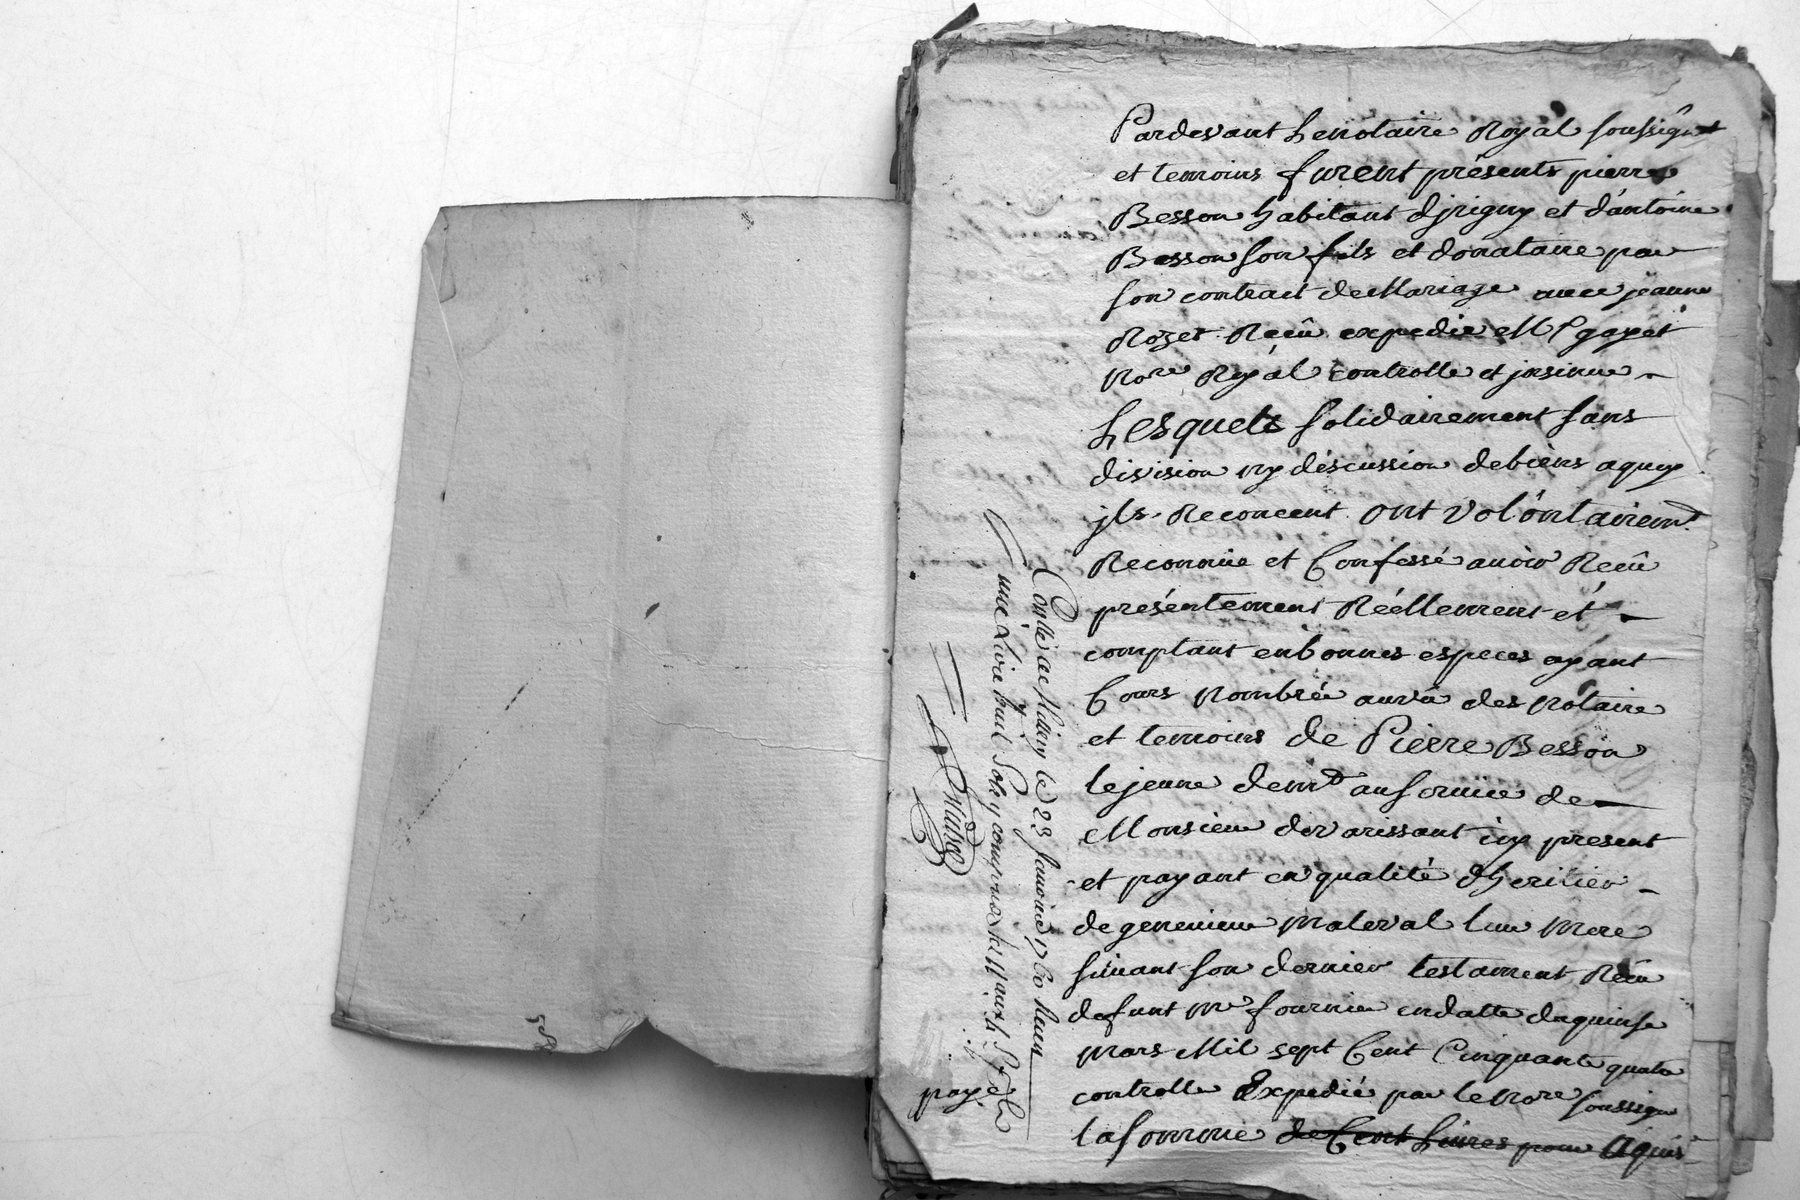 Pardevant Lenotaire Royal soussigné
et temoins furent présents pierre
Besson habitant djrigny et d'antoine
Besson son fils et donataire par
son contract de Mariage avec jeanne
Rozet Reçû expedié M^e gayet
No^re Royal controllé et jnsinué
Lesquels solidairement sans
division ny discussion debiens aquoy
jls Reconcent ont volontairem^t
Reconnüe et Confessé avoir Reçû
présentement Réellement et
comptant enbonnes especes ayant
Cours Nombrée auvû des Notaire
et temoins de Pierre Besson
lejeune dem^t auservice de
Monsieur devarissant icy present
et payant en qualité d'heritier
de genevieve Materal leur Mere
suivant son dernier testament Reçû
defunt M^e fournier endatte duquinse
Mars Mil sept Cent Cinquante quatre
controllé Expedié par leNo^re soussigné
lasomme de Cent Livres pour aquis
Con^llé a le 23 1760 Reçu
une Livre huit Sols y compris les
payé